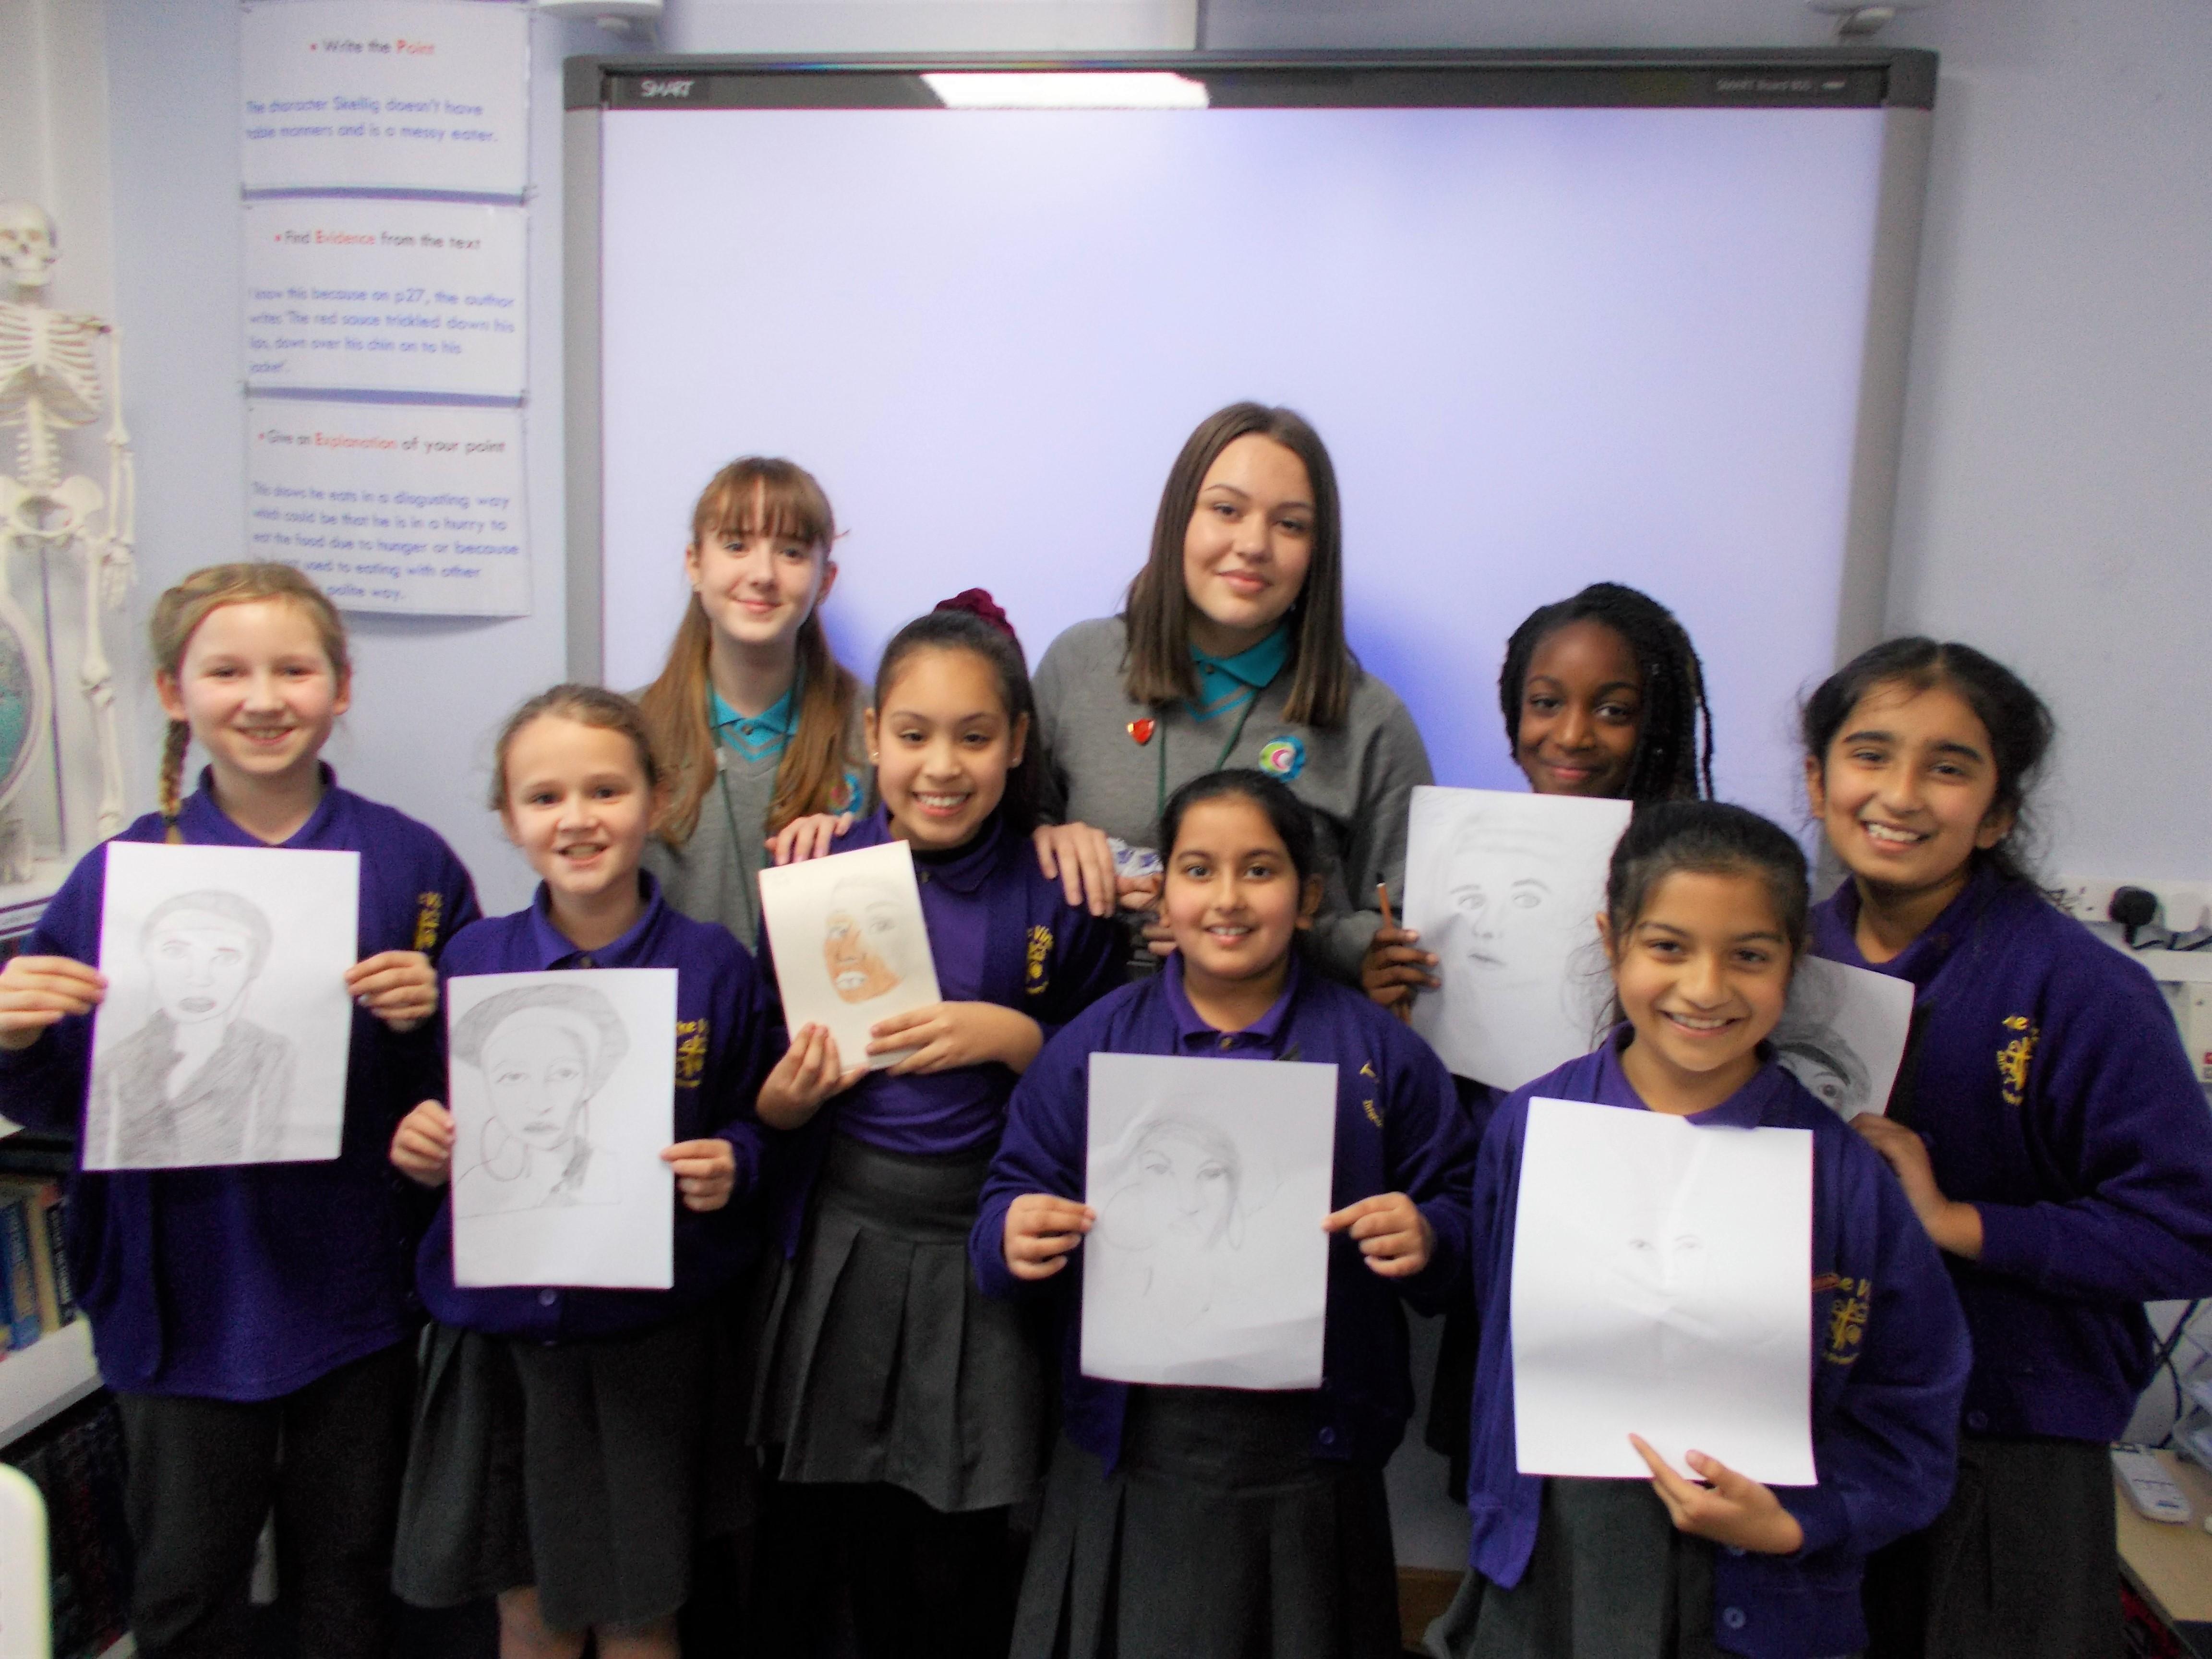 • Write the Point
The character Skellig doesn't have
table manners and is a messy eater.
• Find Evidence from the text
I know this because on p27, the author
writes 'The red sauce trickled down his
lips, down over his chin on to his
jacket'.
• Give an Explanation of your point
This shows he eats in a disgusting way
which could be that he is in a hurry to
eat the food due to hunger or because
used to eating with other
polite way.
SMART
SMART Board